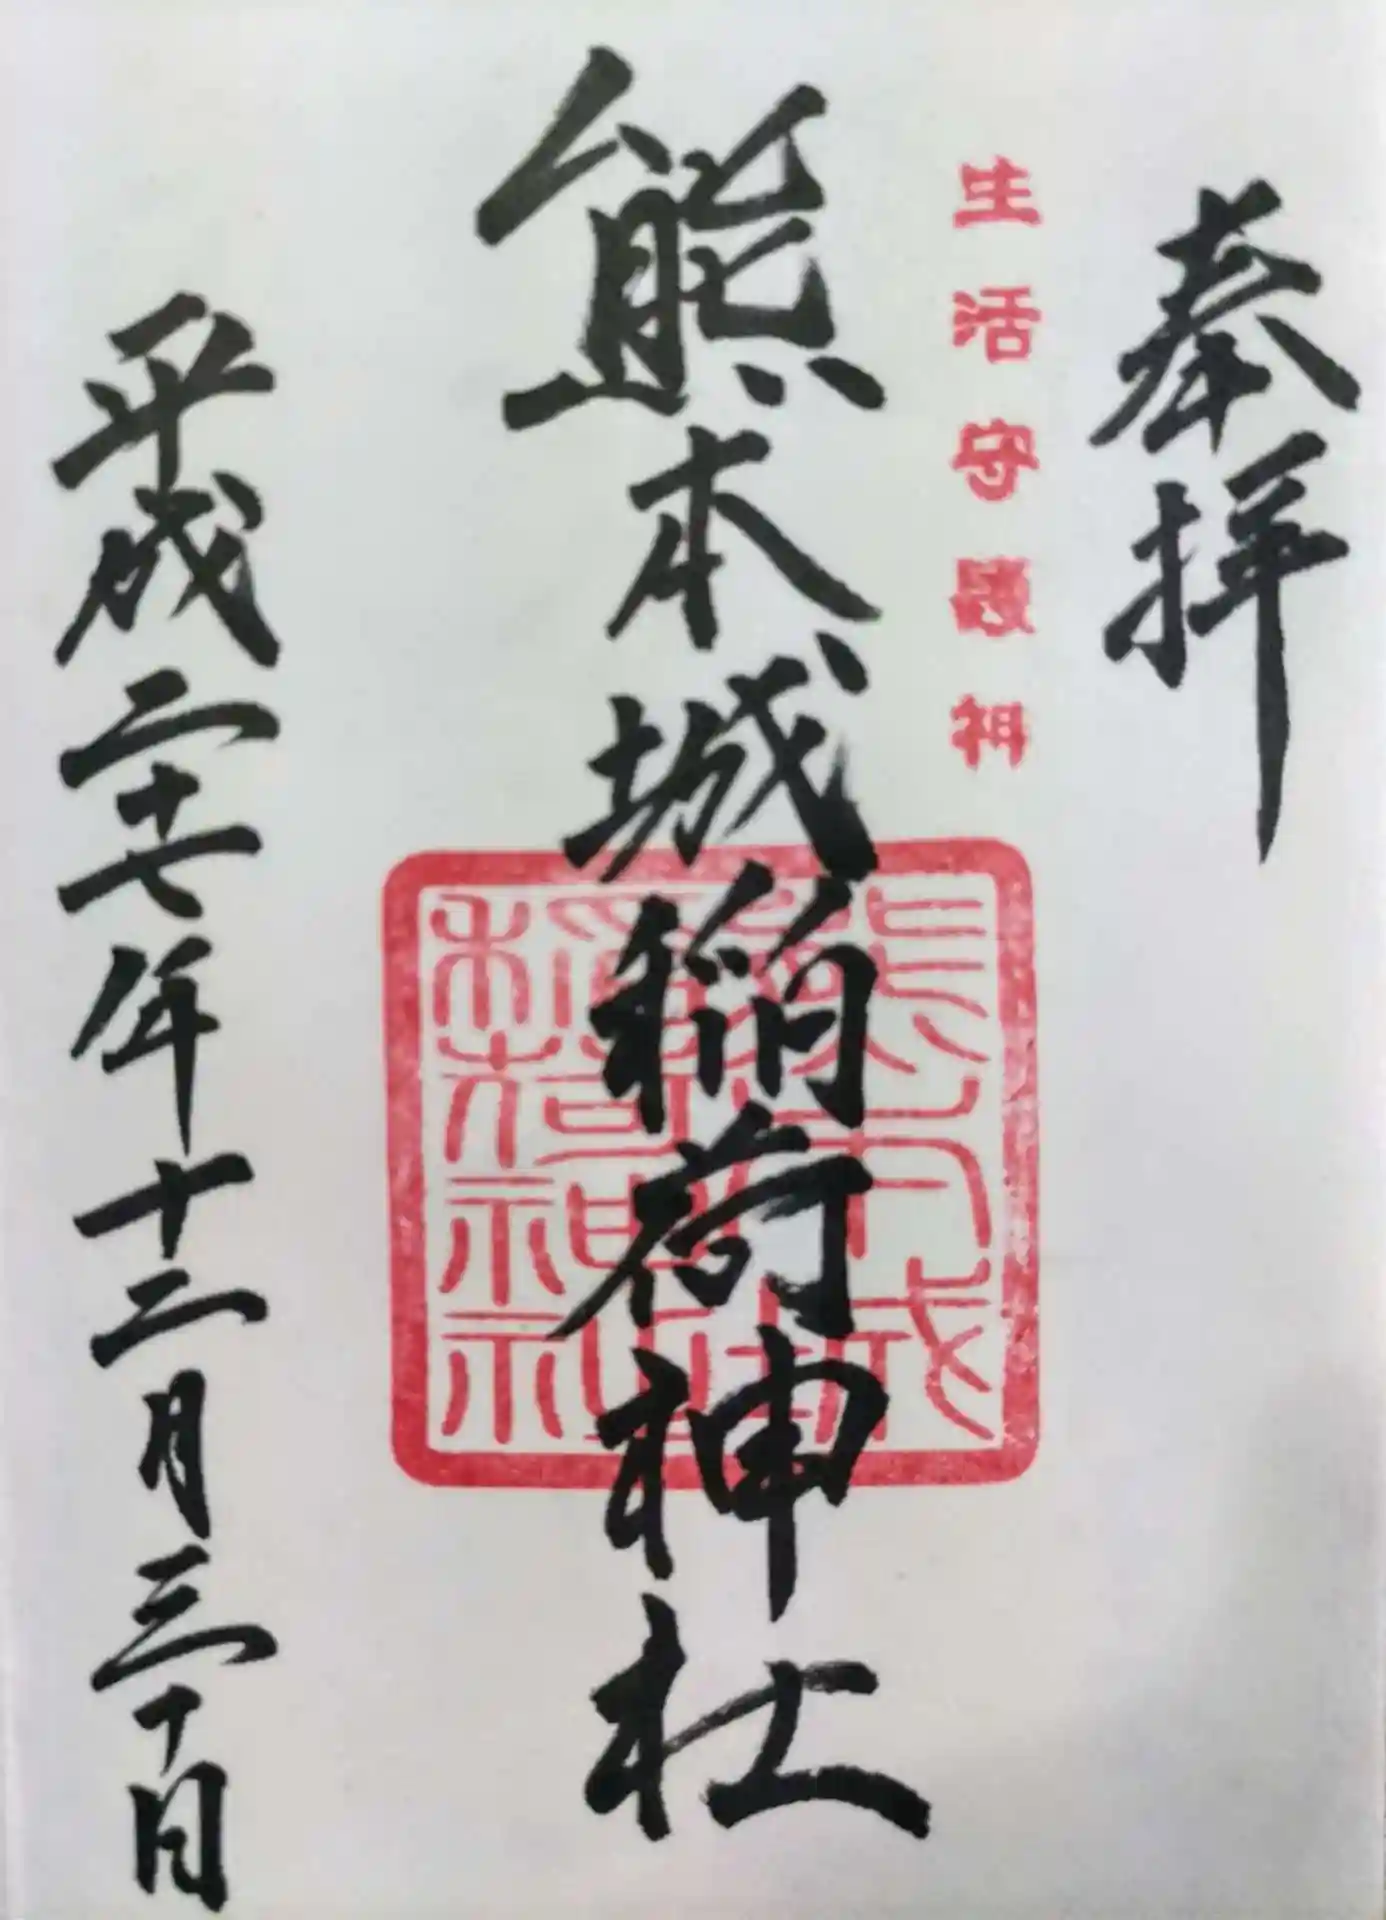 奉拝
生活守護神
熊本城稲荷神社
熊本城
稲荷神社
平成二十七年十二月三十日